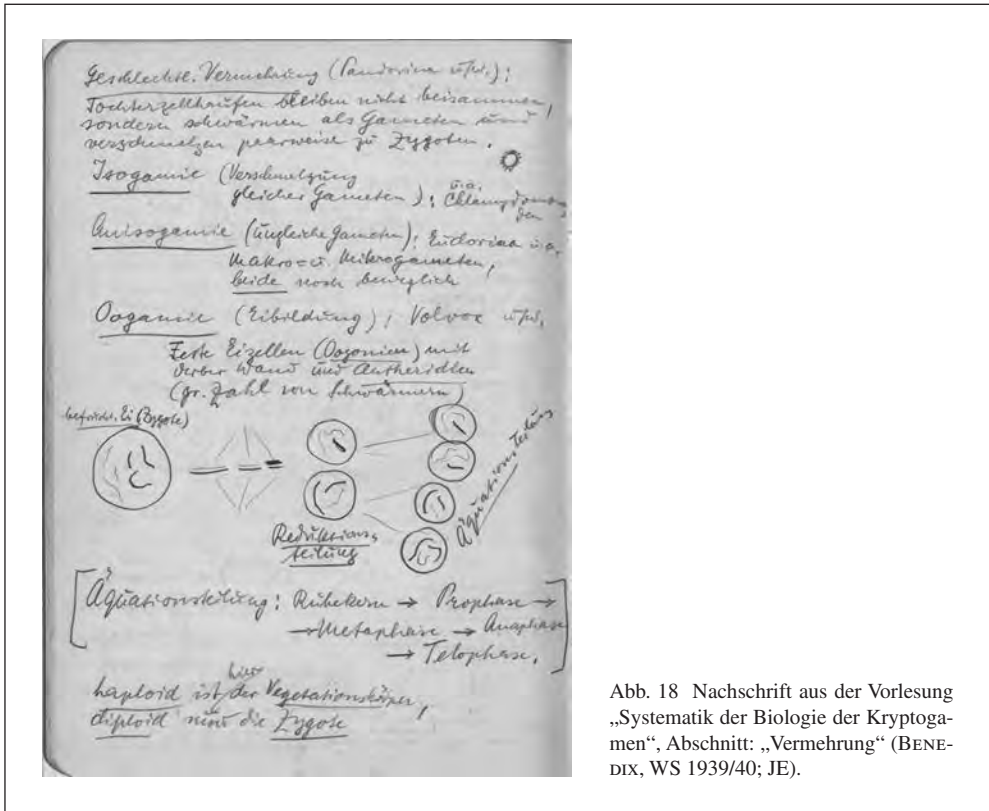 Geschlechtl. Vermehrung (Pandorina usw.):
Tochterzellhaufen bleiben nicht beisammen,
sondern schwärmen als Gameten und
verschmelzen paarweise zu Zygoten.
Isogamie (Verschmelzung
gleicher Gameten): u.a. Chlamydomonaden
Anisogamie (Ungleiche Gameten): Eudorina u.a.
Makro= u. Mikrogameten,
beide noch beweglich
Oogamie (Eibildung); Volvox usw.
Feste Eizellen (Oogonien) mit
derber Wand und Antheridien
(gr. Zahl von Schwärmern)
befrucht. Ei (Zygote)
Reduktions-
teilung
Äquationsteilung
[Äquationsteilung: Ruhekern → Prophase →
→ Metaphase → Anaphase
→ Telophase.]
haploid ist hier der Vegetationskörper,
diploid nur die Zygote
Abb. 18 Nachschrift aus der Vorlesung
„Systematik der Biologie der Kryptoga-
men“, Abschnitt: „Vermehrung“ (BENE-
DIX, WS 1939/40; JE).